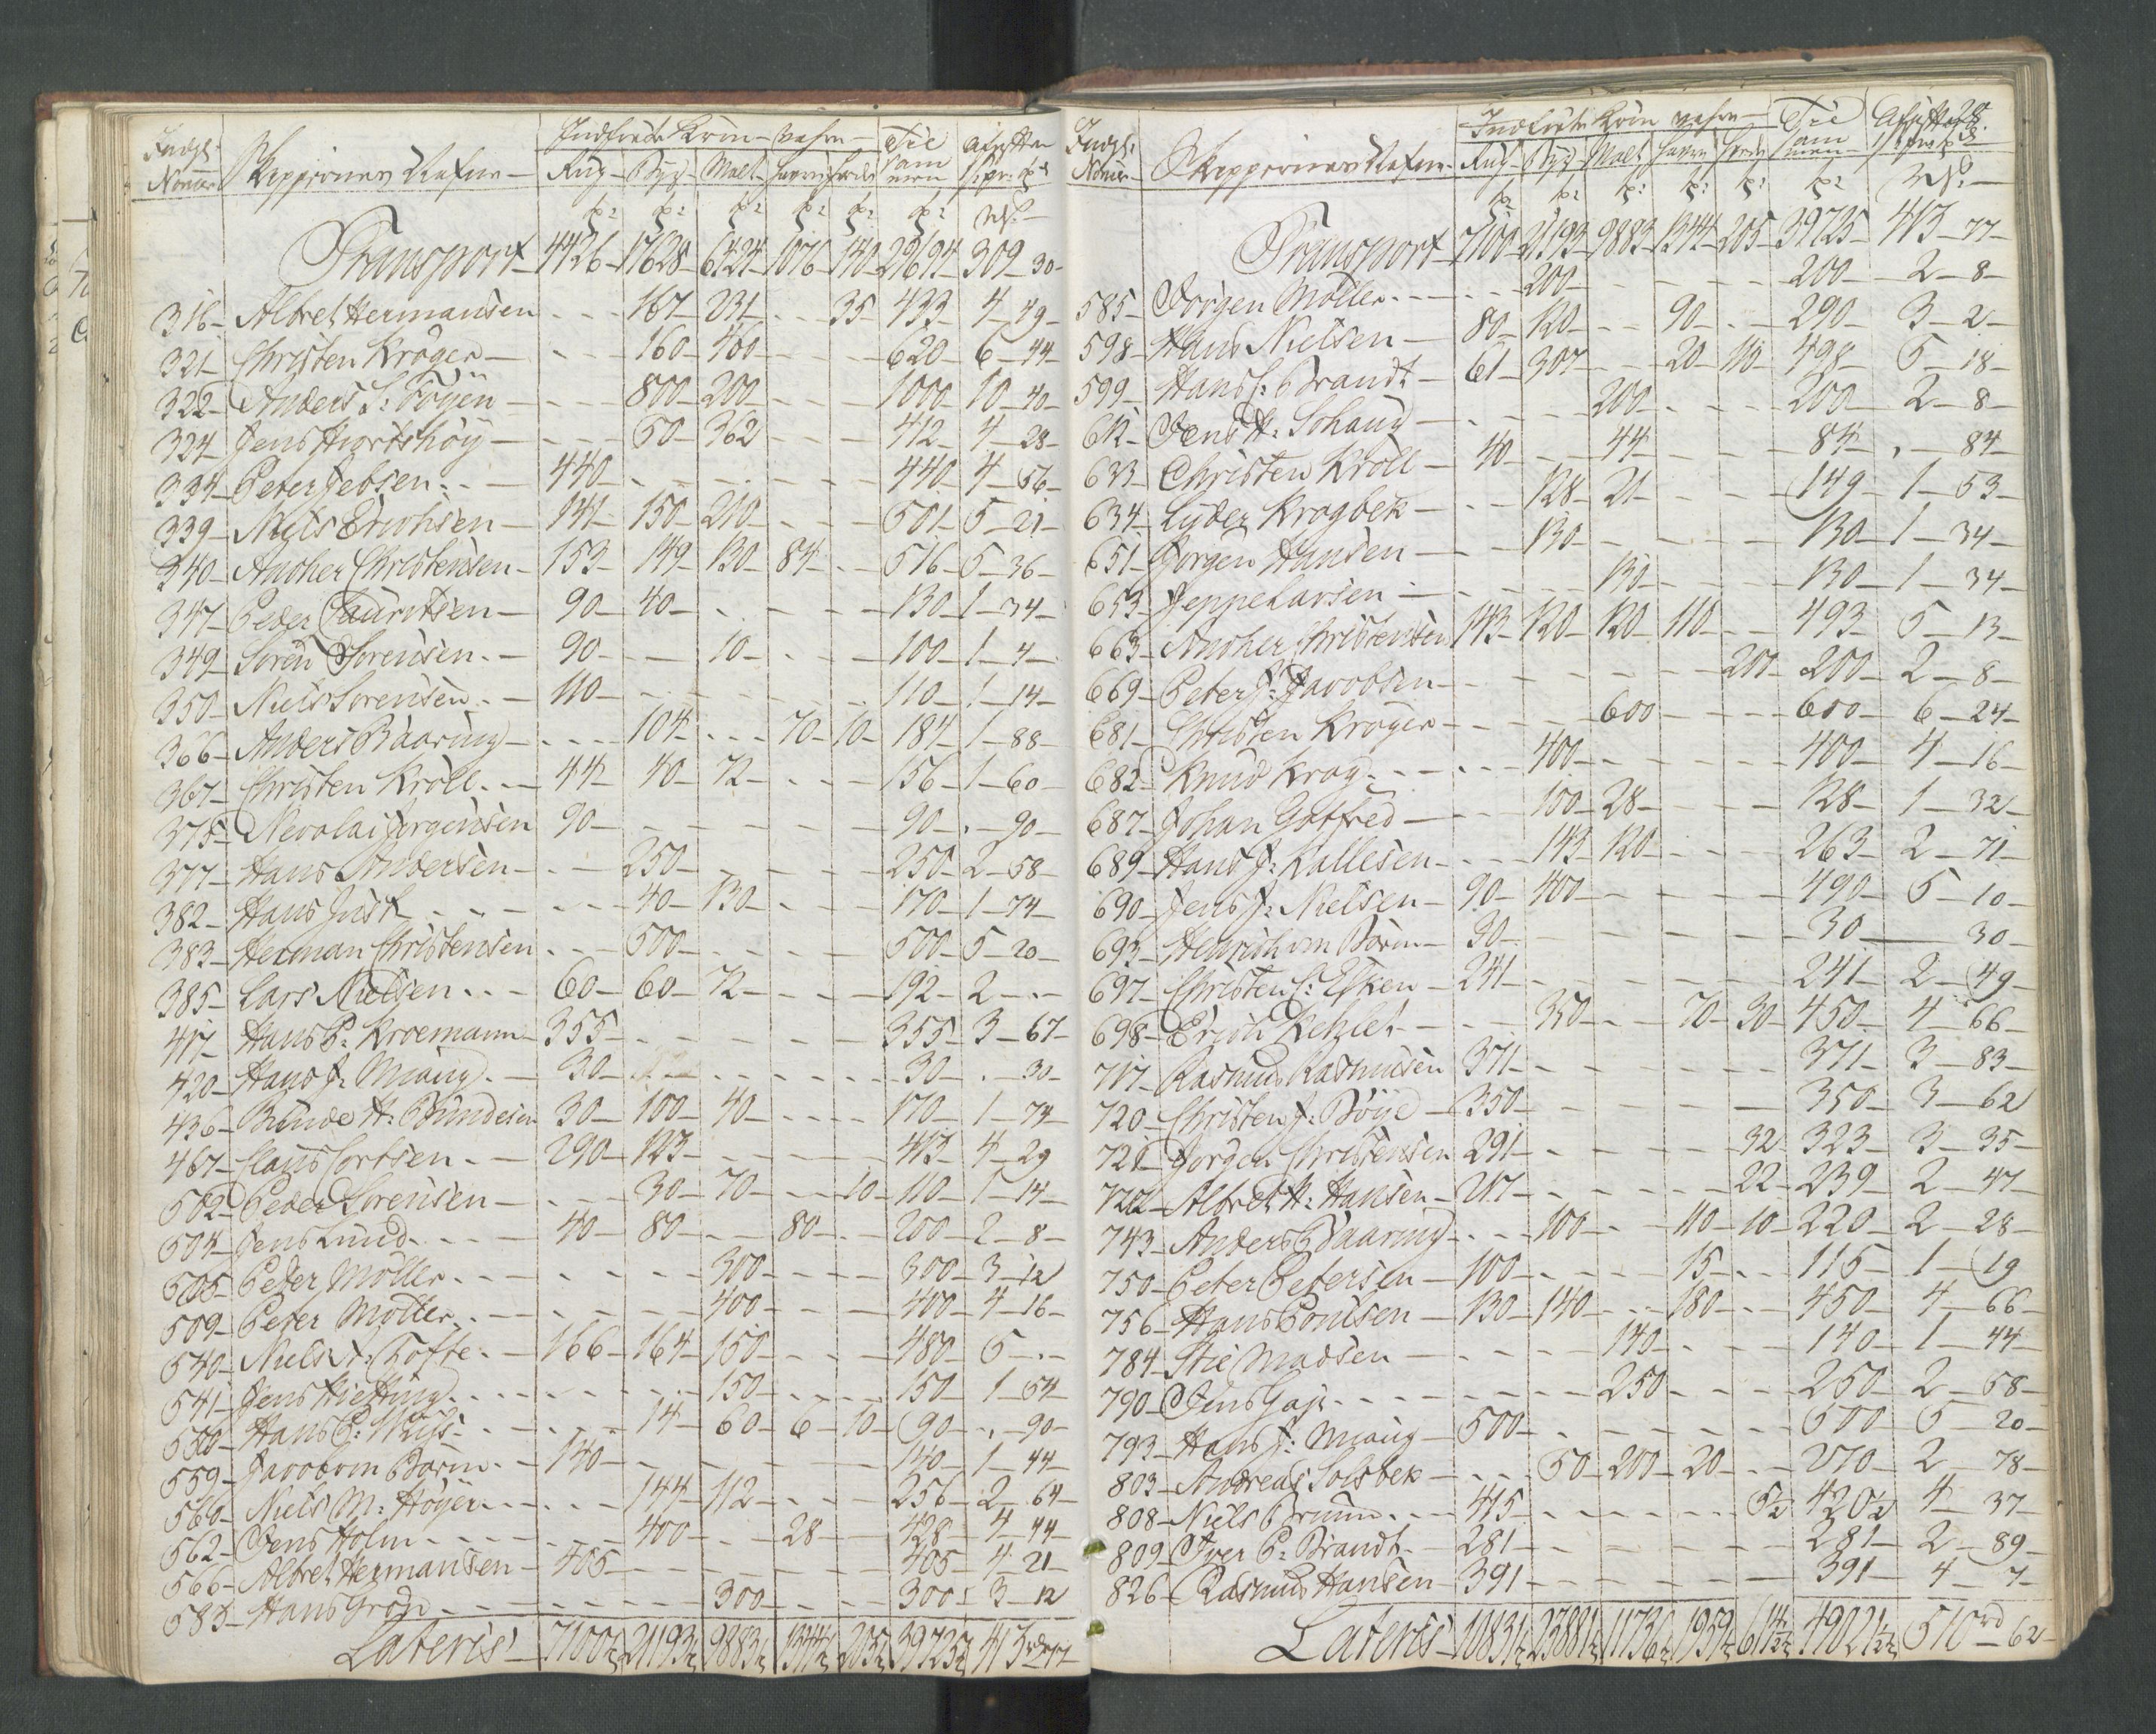 Indgl: Skippernes Nafne Indførte Korn-vahre Til Afgiften
Nomer Rug Byg Malt Havre Erter sammen 1 s pr. td
Transport 4426 17628 6424 1076 140 29694 309 30
316 Albret Hermansen 167 231 35 433 4 49
321 Christen Krøger 160 460 620 6 44
322 Anders S: Føÿen 800 200 1000 10 40
324 Jens Hvortshøÿ 50 362 412 4 28
334 Peter Jebsen 440 440 4 56
339 Niels Erichsen 141 150 210 501 5 21
340 Ancher Christensen 153 149 130 84 516 5 36
347 Peder Lauritsen 90 40 130 1 34
349 Søren Sørensen 90 10 100 1 4
350 Niels Sørensen 110 110 1 14
366 Anders Baaring 104 70 10 184 1 88
367 Christen Krøll 44 40 72 156 1 60
375 Nicolai Jørgensen 90 90 90
377 Hans Andersen 250 250 2 58
382 Hans Just 40 130 170 1 74
383 Herman Christensen 500 500 5 20
385 Lars Nielsen 60 60 72 192 2
417 Hans P: Kroemann 355 355 3 67
420 Hans J: Maug 30 30 30
436 Bunde H: Bundesen 30 100 40 170 1 74
467 Claus Cortsen 290 123 413 4 29
502 Peder Sørensen 30 70 10 110 1 14
504 Jens Lund 40 80 80 200 2 8
505 Peter Møller 300 300 3 12
509 Peter Møller 400 400 4 16
540 Niels A: Tofte 166 164 150 480 5
541 Jens Kielting 150 150 1 54
550 Hans P: 14 60 6 10 90 90
559 Jacob von Børm 140 140 1 44
560 Niels M: Høÿer 144 112 256 2 64
562 Jens Holm 400 28 428 4 44
566 Albret Hermansen 405 405 4 21
583 Hans Grøn 300 300 3 12
Lateris 7100 21193 9883 1344 205 39725 413 77
Indgl: Skippernes Nafne Indførte Korn vahre Til Afgiften
Nomer Rug Byg Malt Havre Erter sammen
Transport 7100 21193 9883 1344 205 39725 413 77
585 Jørgen Møller 200 200 2 8
598 Hans Nielsen 80 120 90 290 3 2
599 Hans C: Brandt 61 307 20 110 498 5 18
612 Jens H: Schaug 200 200 2 8
633 Christen Krøll 40 44 84 84
634 Lyder Krogbek 128 21 149 1 53
651 Jørgen Hansen 130 130 1 34
653 Jeppe Larsen 130 130 1 34
663 Ancher Christensen 143 120 120 110 493 5 13
669 Peter J: Jacobsen 200 200 2 8
681 Christen Krøger 600 600 6 24
682 Knud Krag 400 400 4 16
687 Johan Gotfred 100 28 128 1 32
689 Hans J: Kallesen 143 120 263 2 71
690 Jens J: Nielsen 90 400 490 5 10
693 Hinrich von Børm 30 30 30
697 Christen C: Esken 241 241 2 49
698 Erich Ketzler 350 70 30 450 4 66
717 Rasmus Rasmusen 371 371 3 83
720 Christen J: Bøÿe 350 350 3 62
721 Jørgen Christensen 291 32 323 3 35
722 Albret H: Hansen 217 22 239 2 47
743 Anders Baaring 100 110 10 220 2 28
750 Peter Petersen 100 15 115 1 19
756 Hans Poulsen 130 140 180 450 4 66
784 Stie Madsen 140 140 1 44
790 Jens Gaje 250 250 2 58
793 Hans J: Maug 500 500 5 20
803 Andreas Solsbek 50 200 20 270 2 78
808 Niels Bruun 415 5½ 420½ 4 37
809 Iver P: Brandt 281 281 2 89
826 Rasmus Hansen 391 391 4 7
Lateris 10831 23881 11736 1959 614½ 49021½ 510 rd 62